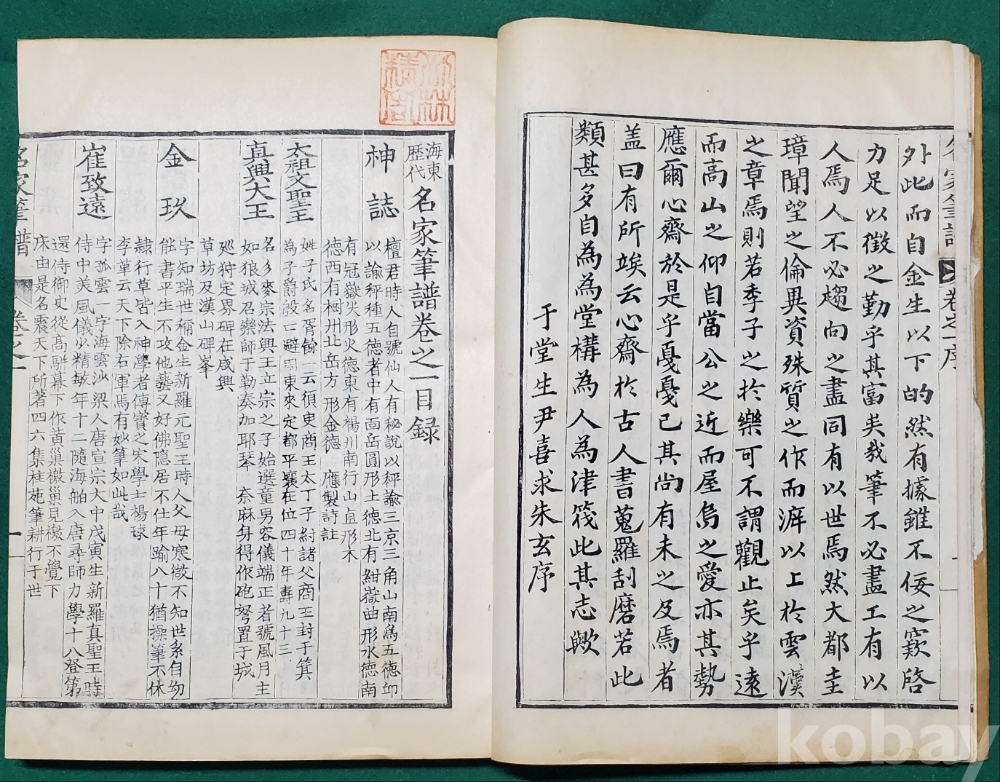 外此而自金生以下的然有據雖不佞之窾啓
力足以徵之勤乎其富矣哉筆不必盡工有以
人焉人不必趨向之盡同有以世焉然大都圭
璋聞望之倫異資殊質之作而溯以上於雲漢
之章焉則若季子之於樂可不謂觀止矣乎遠
而高山之仰自當公之近而屋烏之愛亦其勢
應爾心齋於是乎戞戞已其尚有未之及焉者
盖曰有所竢云心齋於古人書蒐羅刮磨若此
類甚多自為為堂構為人為津筏此其志歟
于堂生尹喜求朱玄序
名家筆譜 卷之一序
海東歷代名家筆譜卷之一目録
神誌
檀君時人自號仙人有秘說以枰諭三京三角山南爲五德邱
以諭秤種五德者中有面岳圓形土德北有紺嶽曲形水德南
有冠嶽尖形火德東有楊川南行山直形木
德西有樹州北岳方形金德 應製詩註
太祖文聖王
姓子氏名胥餘一云須臾商王太丁子紂諸父商王封于箕
為子爵殷亡避開東來定都平壤在位四十年壽九十三
真興大王
名彡麥宗法興王立宗之子始選童男容儀端正者號風月主
如狼 召樂師于勒奏加耶琴 奈麻身得作砲弩置于城
廵狩定界碑在咸興
草坊及漢山碑峯
金玖
字知瑞世稱金生新羅元聖王時人父母寒微不知世系自幼
能書平生不攻他藝又好佛隱居不仕年踰八十猶操筆不休
隷行草皆入神學者傳寶之宋學士楊球
李革云天下除右軍焉有妙筆如此哉
崔致遠
字孤雲一字海雲沙梁人唐宣宗大中戊寅生新羅真聖王時
侍中美風儀少精敏年十二隨海舶入唐尋師力學十八登第
還侍御史從高騈幕下作黃巢檄巢見檄不覺下
床由是名震天下所著四六集桂苑筆耕行于世
名家筆譜 卷之一 一
kobay